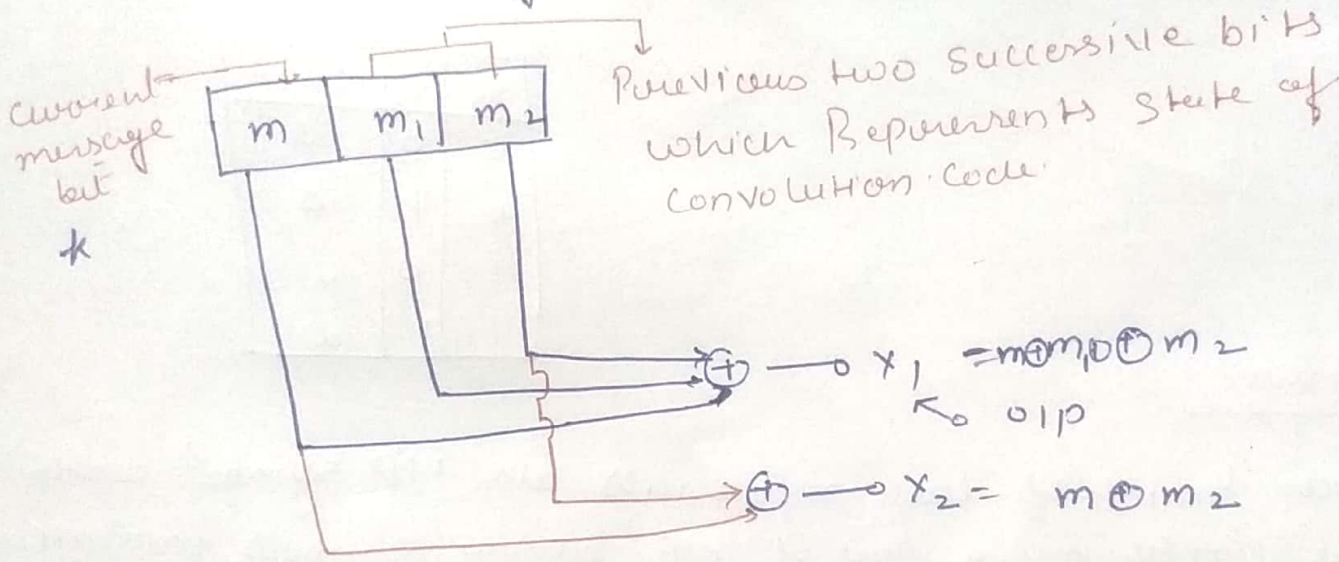 current
message
bit
*
m m1 m2
Previous two successive bits
which Represents State of
Convolution Code.
x1 = m⊕m1⊕m2
o/p
x2 = m ⊕ m2